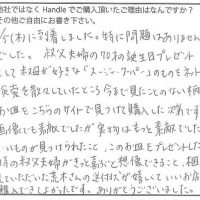 他社ではなく Handle でご購入頂いた理由はなんですか？
その他ご自由にお書き下さい。
今(木)に到着しました。特に問題はありません
でした。 叔父夫婦の70才の誕生日プレゼント
して 本棚が好きな「スージー・クーパー」のものをネット
散策を散々していたところ今まで見たことのない柄
お皿をこちらのサイトで見つけて購入した次第です
画像でも素敵でしたが実物はもっと素敵でした
いものが見つけられたこと、このお皿をプレゼントした
時の叔父夫婦がきっと喜ぶと想像できること、梱
していただいた荒木さんの送付状が嬉しくていいお店
購入できしよかったです。ありがとうございました。